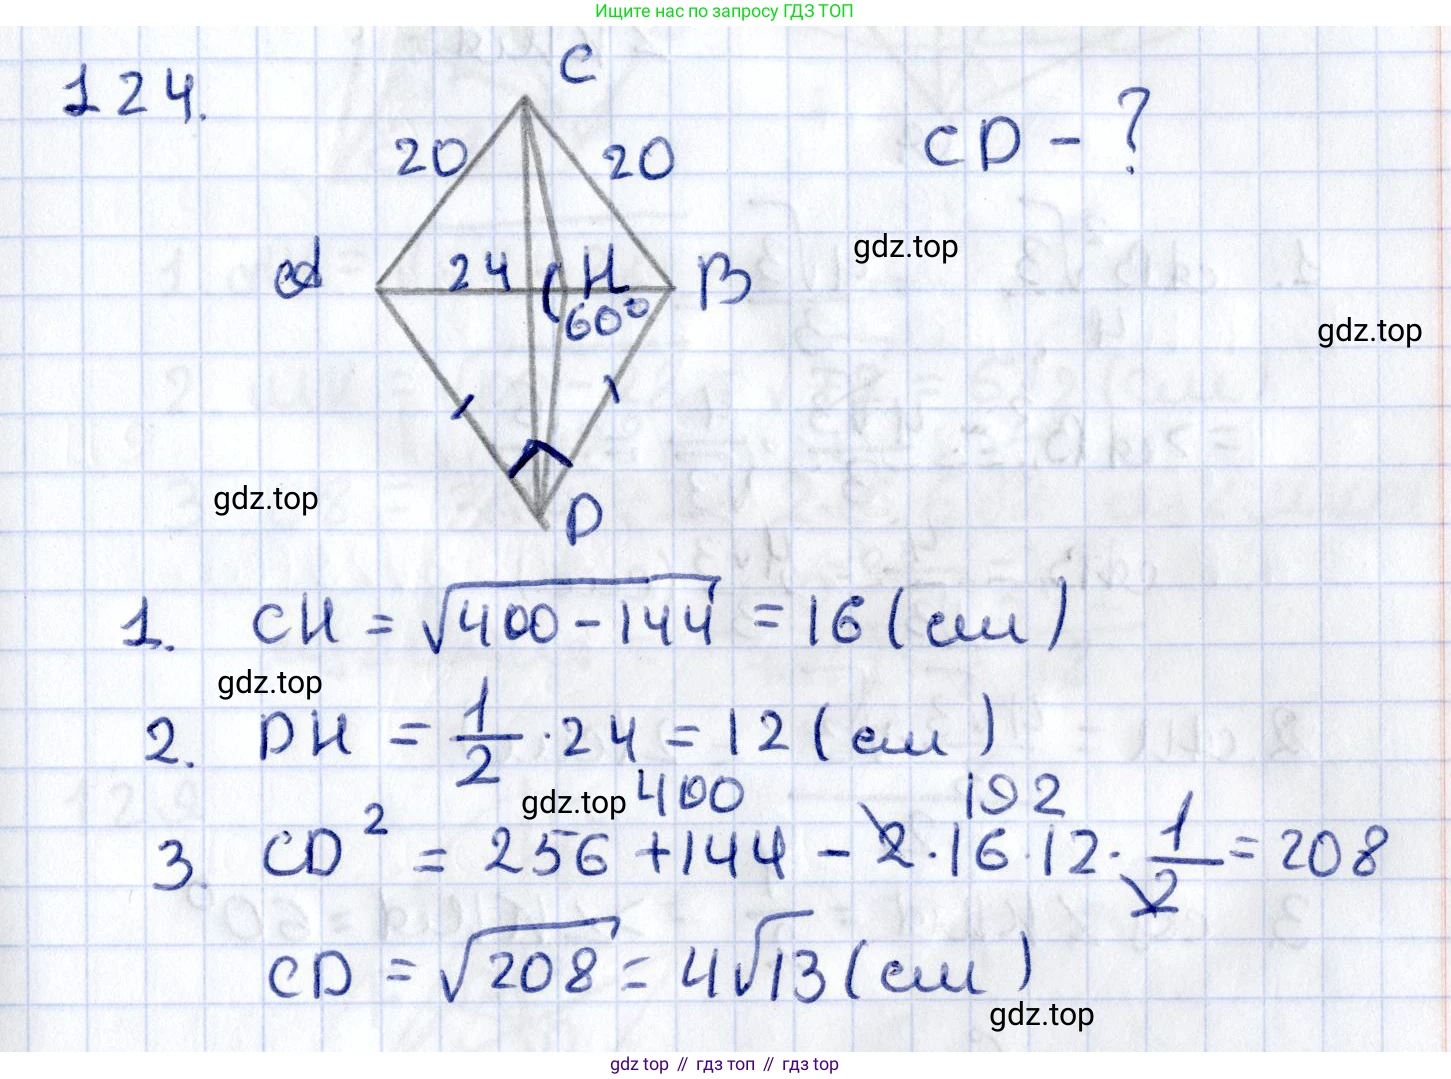 Ищите нас по запросу ГДЗ ТОП
124.
C
CD - ?
20
20
gdz.top
A
24
H
B
60°
gdz.top
gdz.top
D
1. CH = √400 - 144 = 16 (см)
gdz.top
2. DH = 1/2 · 24 = 12 (см)
gdz.top
400
192
3. CD² = 256 + 144 - 2 · 16 · 12 · 1/2 = 208
CD = √208 = 4√13 (см)
gdz.top
gdz top // гдз топ // гдз top